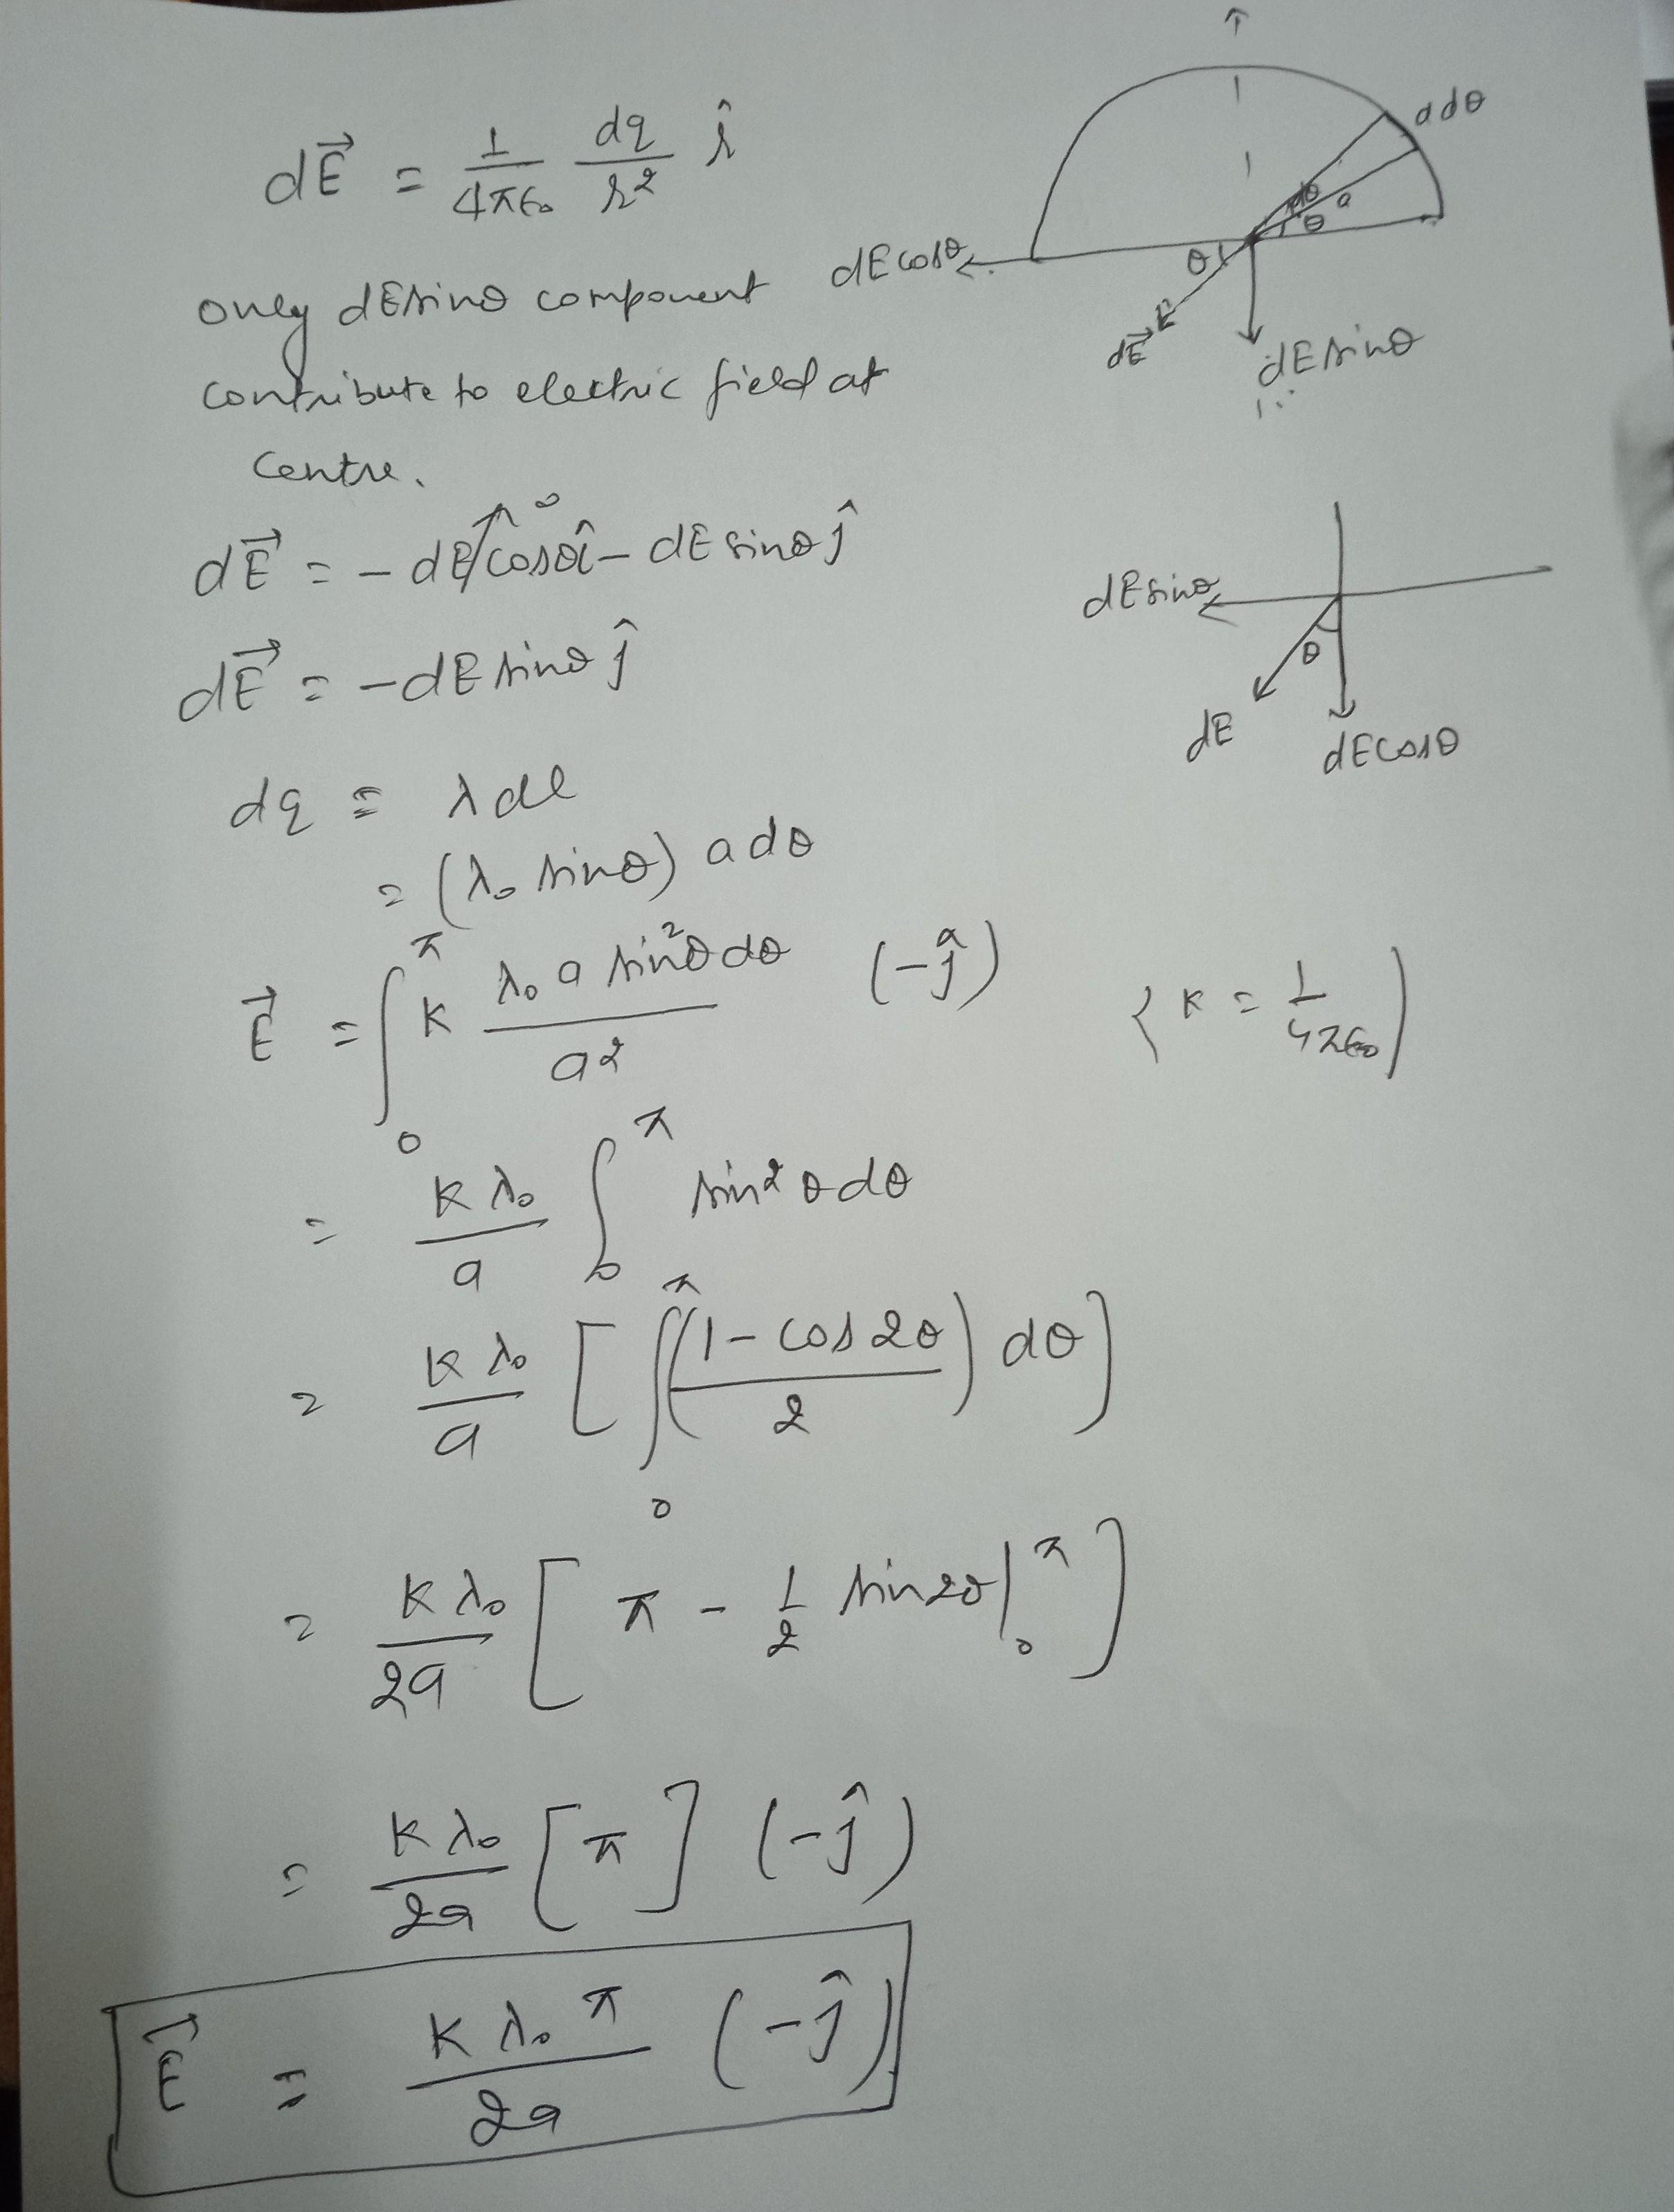 dE⃗ = 1/4πϵ₀ dq/r² r̂
only dEsinθ component
contribute to electric field at
centre.
dE⃗ = – dE cosθ î – dE sinθ ĵ
0
dE⃗ = – dE sinθ ĵ
dq = λ dl
= (λ₀ sinθ) a dθ
E⃗ = ∫₀^π K λ₀ a sin²θ dθ / a² (–ĵ)
{ K = 1/4πϵ₀ )
= K λ₀/a ∫₀^π sin²θ dθ
= K λ₀/a [ ∫₀^π (1 – cos2θ / 2) dθ ]
= K λ₀/2a [ π – 1/2 sin2θ |₀^π ]
= K λ₀/2a [ π ] (–ĵ)
E⃗ = K λ₀ π/2a (–ĵ)
a dθ
dθ
a
θ
dE cosθ
θ
dE⃗
dE sinθ
dE sinθ
θ
dE
dE cosθ